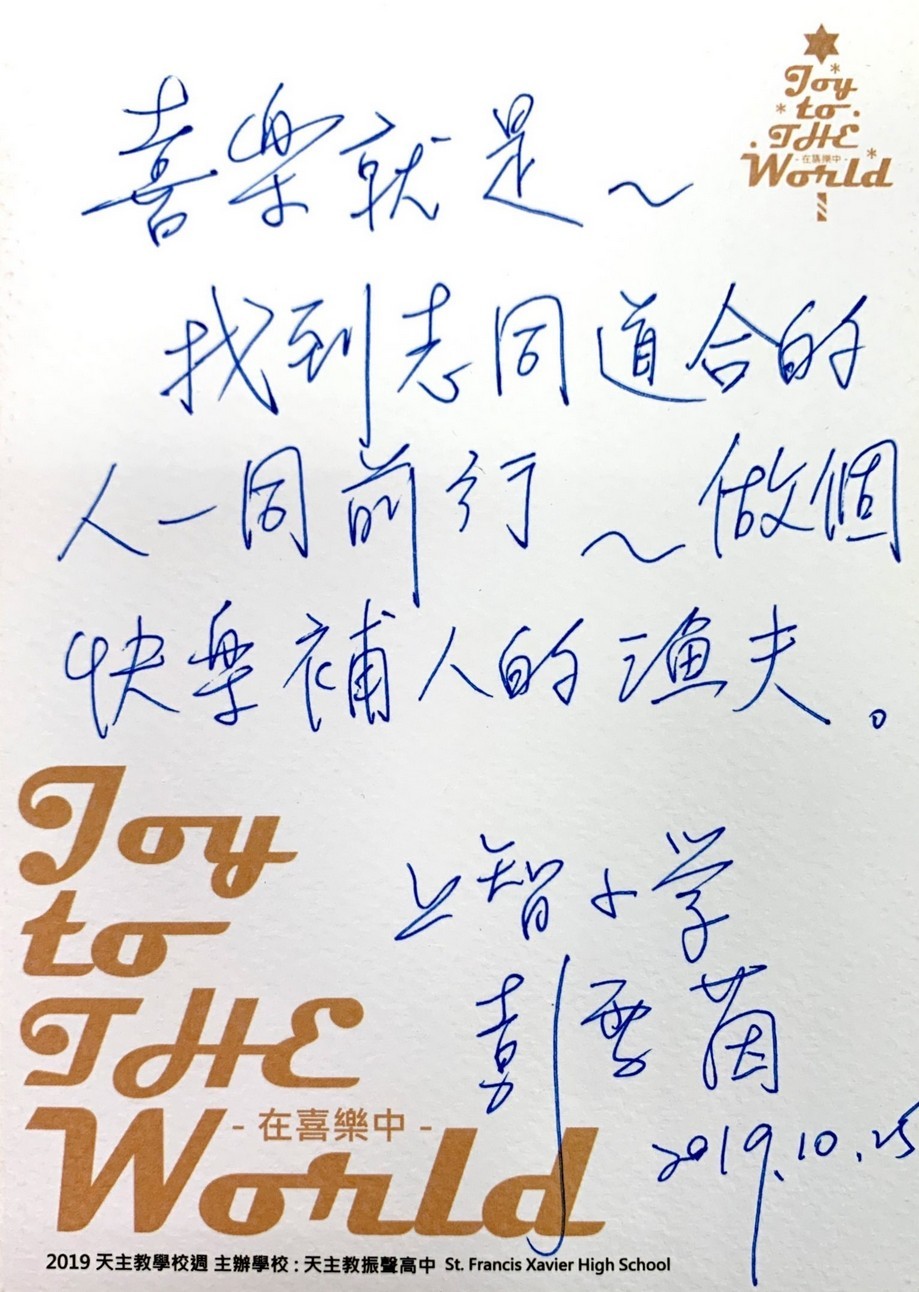 Joy
to
THE
- 在喜樂中 -
World
喜樂就是~
找到志同道合的
人一同前行~做個
快樂補人的漁夫。
上智小學
彭雲茵
2019.10.25
Joy
to
THE
- 在喜樂中 -
World
2019 天主教學校週 主辦學校 : 天主教振聲高中 St. Francis Xavier High School